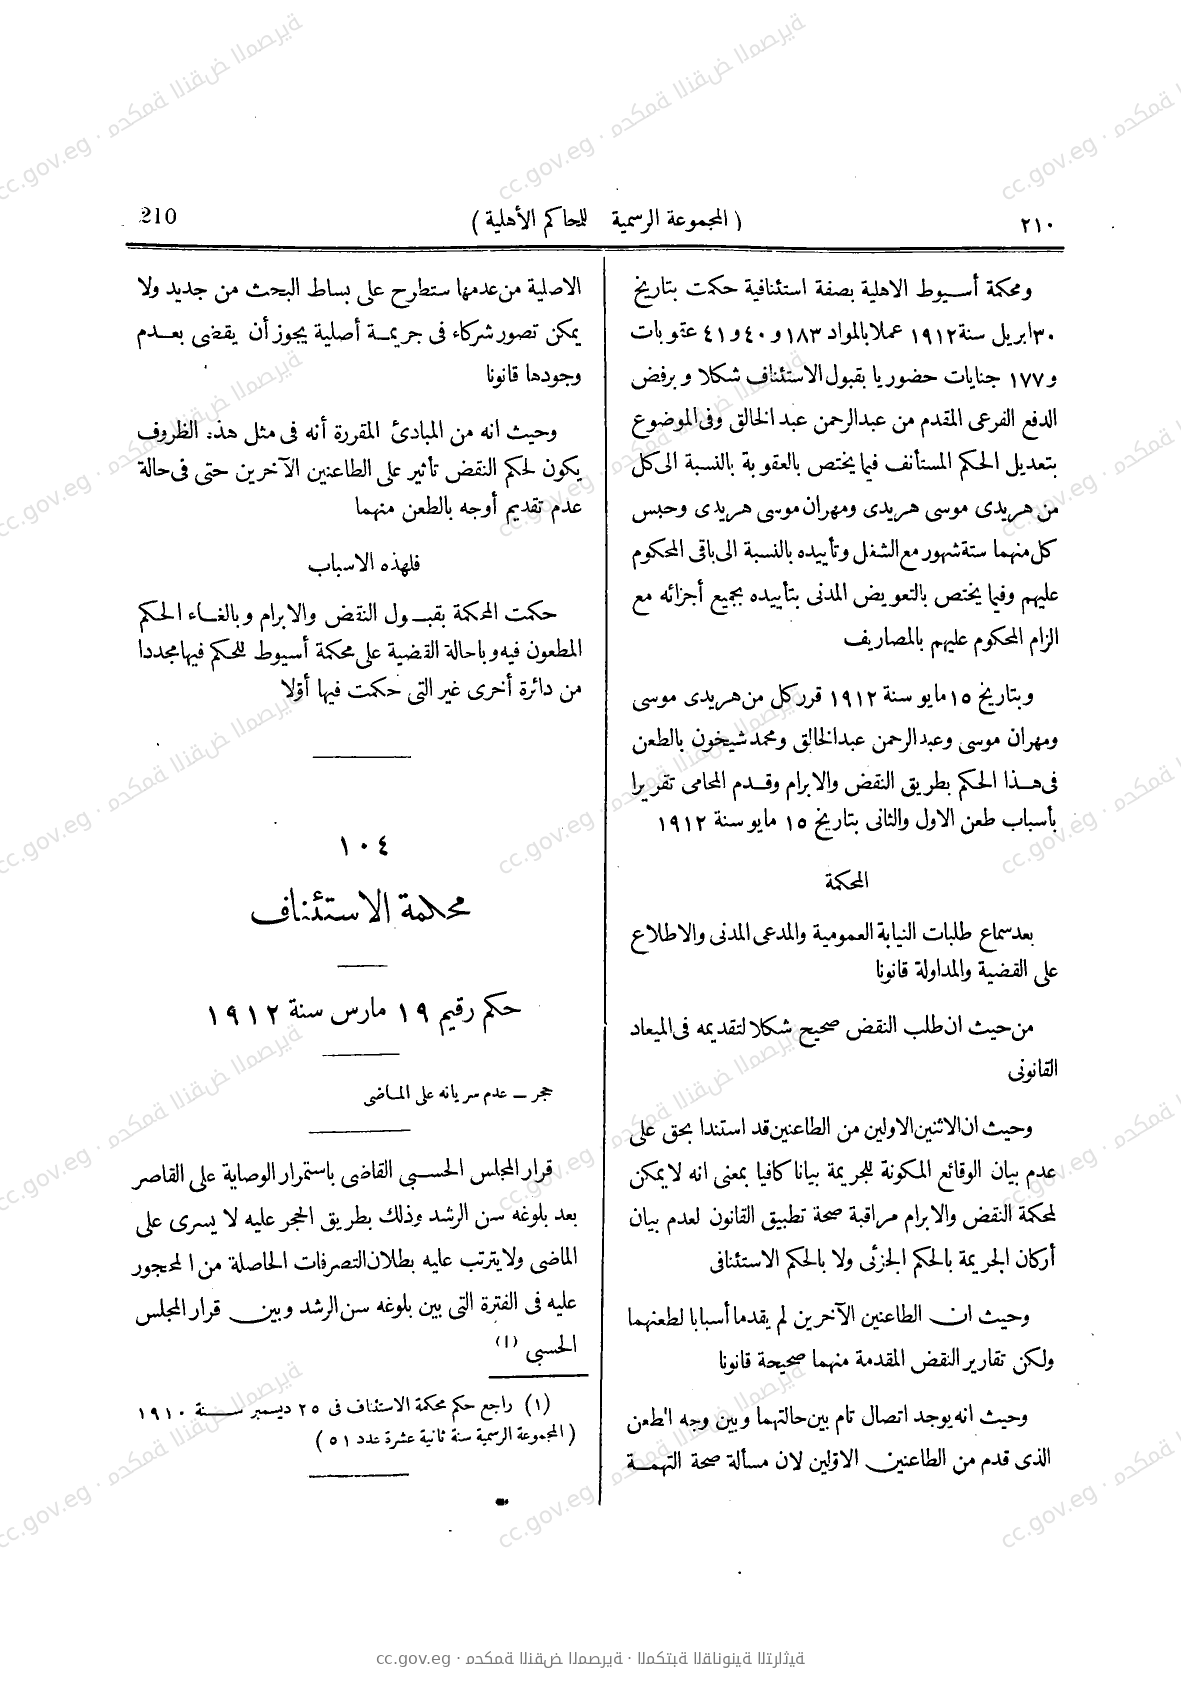 ٢١٠
( المجموعة الرسمية للمحاكم الأهلية )
210
ومحكمة أسيوط الاهلية بصفة استئنافية حكمت بتاريخ
٣٠ ابريل سنة ١٩١٢ عملا بالمواد ١٨٣ و ٤٠ و ٤١ عقوبات
و ١٧٧ جنايات حضوريا بقبول الاستئناف شكلا وبرفض
الدفع الفرعى المقدم من عبدالرحمن عبد الخالق وفى الموضوع
بتعديل الحكم المستأنف فيما يختص بالعقوبة بالنسبة الى كل
من هريدى موسى هريدى ومهران موسى هريدى وحبس
كل منهما ستة شهور مع الشغل وتأييده بالنسبة الى باقى المحكوم
عليهم وفيما يختص بالتعويض المدنى بتأييده بجميع أجزائه مع
الزام المحكوم عليهم بالمصاريف
وبتاريخ ١٥ مايو سنة ١٩١٢ قرر كل من هريدى موسى
ومهران موسى وعبد الرحمن عبدالخالق ومحمد شيخون بالطعن
فى هذا الحكم بطريق النقض والابرام وقدم المحامى تقريرا
بأسباب طعن الاول والثانى بتاريخ ١٥ مايو سنة ١٩١٢
المحكمة
بعد سماع طلبات النيابة العمومية والمدعى المدنى والاطلاع
على القضية والمداولة قانونا
من حيث ان طلب النقض صحيح شكلا لتقديمه فى الميعاد
القانونى
وحيث ان الاثنين الاولين من الطاعنين قد استندا بحق على
عدم بيان الوقائع المكونة للجريمة بيانا كافيا بمعنى انه لا يمكن
لمحكمة النقض والابرام مراقبة صحة تطبيق القانون لعدم بيان
أركان الجريمة بالحكم الجزئى ولا بالحكم الاستئنافى
وحيث ان الطاعنين الآخرين لم يقدما أسبابا لطعنهما
ولكن تقارير النقض المقدمة منهما صحيحة قانونا
وحيث انه يوجد اتصال تام بين حالتهما وبين وجه الطعن
الذى قدم من الطاعنين الاوّلين لان مسألة صحة التهمة
الاصلية من عدمها ستطرح على بساط البحث من جديد ولا
يمكن تصور شركاء فى جريمة أصلية يجوز أن يقضى بعدم
وجودها قانونا
وحيث انه من المبادئ المقررة أنه فى مثل هذه الظروف
يكون لحكم النقض تأثير على الطاعنين الآخرين حتى فى حالة
عدم تقديم أوجه بالطعن منهما
فلهذه الاسباب
حكمت المحكمة بقبول النقض والابرام وبالغاء الحكم
المطعون فيه وباحالة القضية على محكمة أسيوط للحكم فيها مجددا
من دائرة أخرى غير التى حكمت فيها أوّلا
١٠٤
محكمة الاستئناف
حكم رقيم ١٩ مارس سنة ١٩١٢
حجر — عدم سريانه على الماضى
قرار المجلس الحسبى القاضى باستمرار الوصاية على القاصر
بعد بلوغه سن الرشد وذلك بطريق الحجر عليه لا يسرى على
الماضى ولا يترتب عليه بطلان التصرفات الحاصلة من المحجور
عليه فى الفترة التى بين بلوغه سن الرشد وبين قرار المجلس
الحسبى (١)
(١) راجع حكم محكمة الاستئناف فى ٢٥ ديسمبر سنة ١٩١٠
( المجموعة الرسمية سنة ثانية عشرة عدد ٥١ )
cc.gov.eg · محكمة النقض المصرية · المكتبة القانونية التراثية